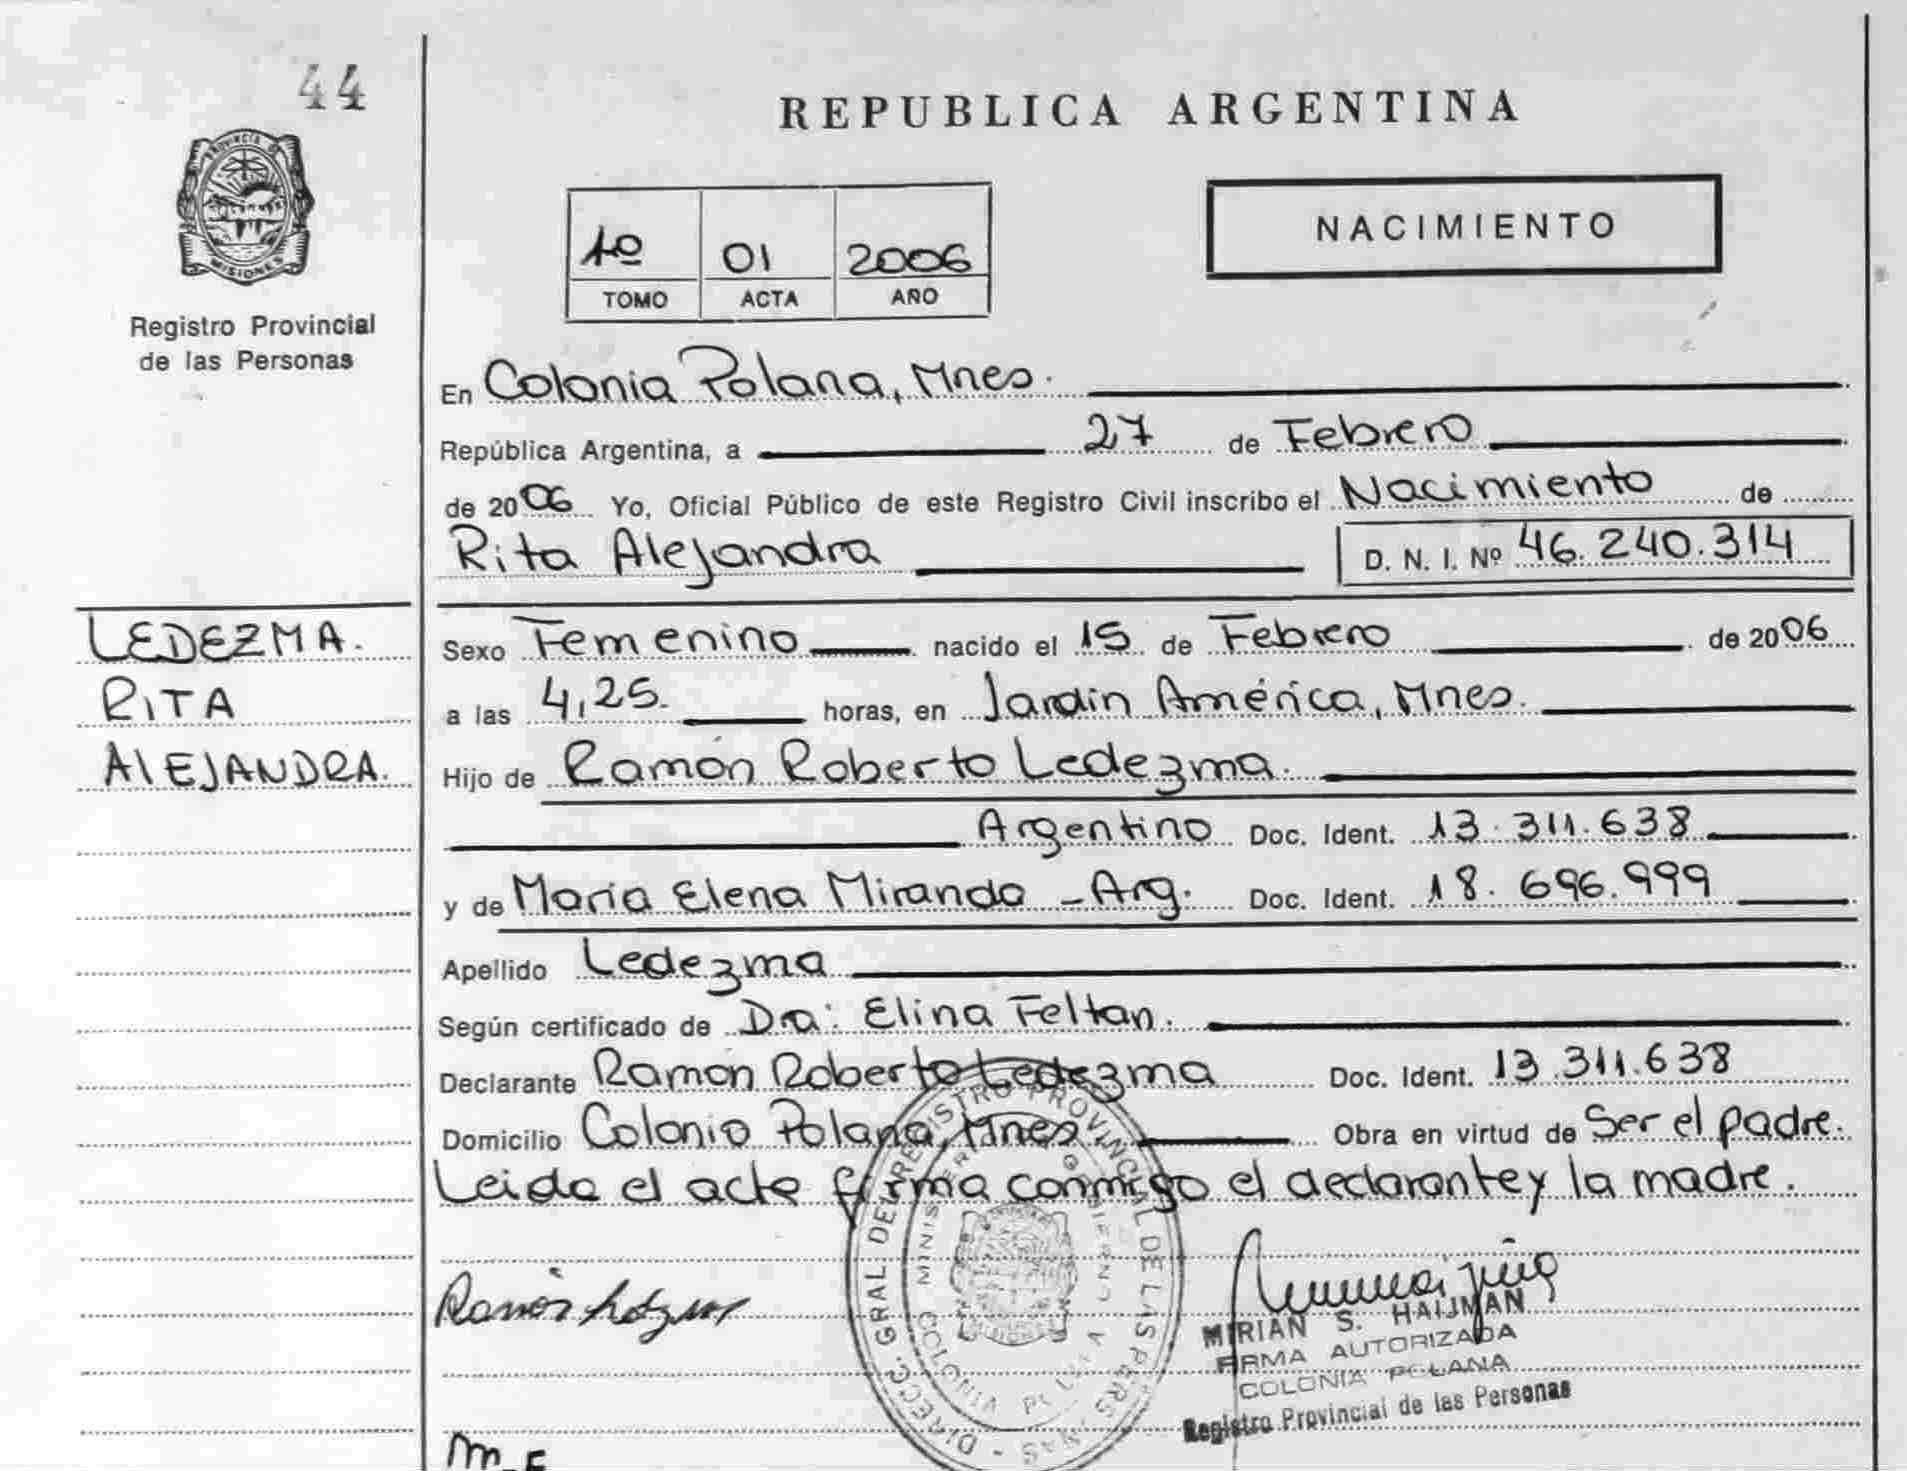 44
PROVINCIA DE
MISIONES
Registro Provincial
de las Personas
LEDEZMA.
RITA
ALEJANDRA.
REPUBLICA ARGENTINA
1º 01 2006
TOMO ACTA AÑO
NACIMIENTO
En Colonia Polana, Mnes.
República Argentina, a 27 de Febrero
de 2006 Yo, Oficial Público de este Registro Civil inscribo el Nacimiento de
Rita Alejandra D. N. I. Nº 46.240.314
Sexo Femenino nacido el 15 de Febrero de 2006
a las 4,25. horas, en Jardin América, Mnes.
Hijo de Ramón Roberto Ledezma.
Argentino Doc. Ident. 13.311.638
y de María Elena Miranda - Arg. Doc. Ident. 18.696.999
Apellido Ledezma
Según certificado de Dra: Elina Feltan.
Declarante Ramón Roberto Ledezma Doc. Ident. 13.311.638
Domicilio Colonia Polana, Mnes Obra en virtud de Ser el padre.
Leida el acta firma conmigo el declarante y la madre.
DIRECC. GRAL. DEL REGISTRO PROVINCIAL DE LAS PERS.
COLONIA POLANA
Ramón
MIRIAN S. HAIJMAN
FIRMA AUTORIZADA
COLONIA POLANA
Registro Provincial de las Personas